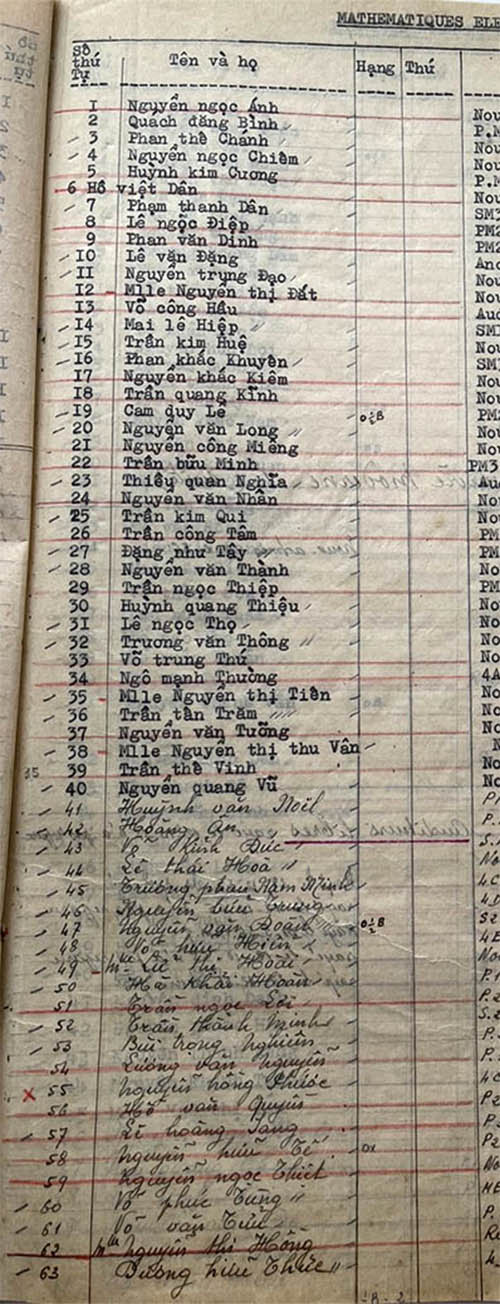 MATHEMATIQUES ELE
Số thứ Tự Tên và họ Hạng Thứ
1 Nguyễn ngọc Ánh Nou
2 Quách đăng Bình P.M
3 Phan thế Chánh Nou
4 Nguyễn ngọc Chiêm Nou
5 Huỳnh kim Cương P.M
6 Hồ viết Dân Nou
7 Phạm thanh Dân SM3
8 Lê ngọc Điệp PM2
9 Phan văn Dinh PM2
10 Lê văn Đặng Anc
11 Nguyễn trung Đạo Nou
12 Mlle Nguyễn thị Đất Nou
13 Võ công Hầu Aud
14 Mai lê Hiệp SM1
15 Trần kim Huệ Nou
16 Phan khắc Khuyên SM
17 Nguyễn khắc Kiêm Nou
18 Trần quang Kĩnh Nou
19 Cam duy Lê PM2
20 Nguyễn văn Long Nou
21 Nguyễn công Miêng Nou
22 Trần bửu Minh PM3
23 Thiều quan Nghĩa Aud
24 Nguyễn văn Nhần Nou
25 Trần kim Qui Nou
26 Trần công Tâm PM
27 Đặng như Tây PM
28 Nguyễn văn Thành No
29 Trần ngọc Thiệp PM
30 Huỳnh quang Thiệu No
31 Lê ngọc Thọ No
32 Trương văn Thông No
33 Võ trung Thứ No
34 Ngô mạnh Thường 4A
35 Mlle Nguyễn thị Tiên No
36 Trần tấn Trăm No
37 Nguyễn văn Tưỡng No
38 Mlle Nguyễn thị thu Vân N
39 Trần thế Vinh No
40 Nguyễn quang Vũ No
41 Huỳnh văn Noël P.
42 Hoàng Ân P.
43 Võ Kinh Đức S.
44 Lê thái Hoà No
45 Trương phan Nam Minh 4C
46 Nguyễn bửu Trung 4D
47 Nguyễn văn Đoàn S2
48 Võ hữu Hiền 4E
49 Mlle Lê thị Hoài No
50 Hà Khải Hoàn P.
51 Trần ngọc Lợi P.
52 Trần thành Minh S.
53 Bùi trọng Nghiên P.
54 Lương văn Nguyễn P.
55 Nguyễn hồng Phước 4C
56 Hồ văn Quyền P2
57 Lê hoàng Sang P.
58 Nguyễn hữu Tế P2
59 Nguyễn ngọc Thiết No
60 Võ phúc Tùng ME
61 Võ văn Tửu P.
62 Mlle Nguyễn thị Hồng Re
63 Dương hữu Thức 4